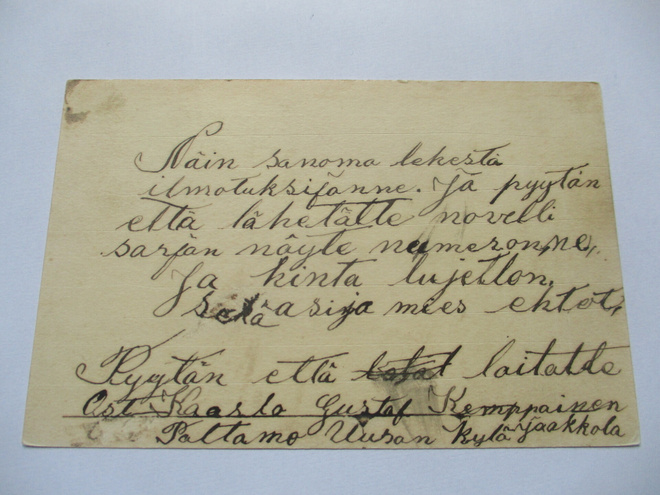 Näin sanoma lehestä
ilmotuksijanne. Ja pyytän
että lähetätte novelli
sarjan näyte numeronne,
Ja hinta lujetlon,
sekä asija mies ehtot,
Pyytän että laitatte
Ost. Kaarlo Gustaf Kemppainen
Paltamo Uusan kylä Jaakkola